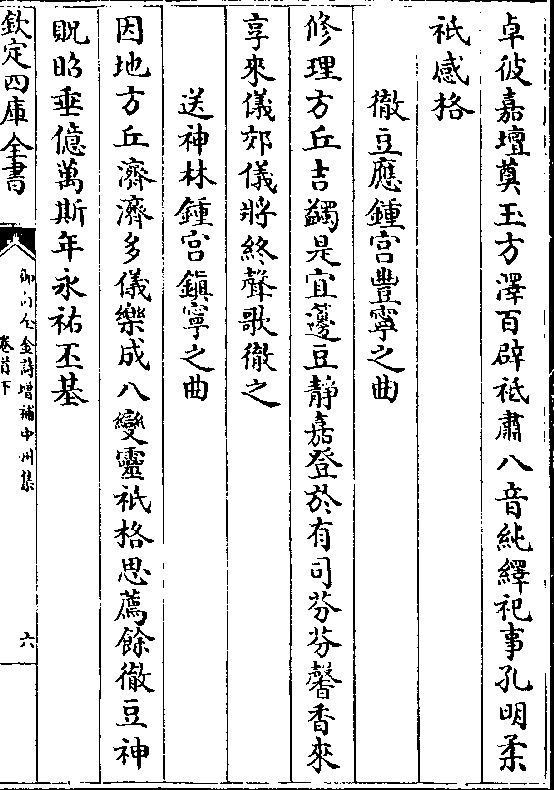 卓彼嘉壇奠玉方澤百辟祗肅八音純繹祀事孔明柔
祇感格
徹豆應鍾宮豐寧之曲
修理方丘吉蠲是宜籩豆靜嘉登於有司芬芬馨香來
享來儀郊儀將終聲歌徹之
送神林鍾宮鎮寧之曲
因地方丘濟濟多儀樂成八變靈祇格思薦餘徹豆神
貺昭垂億萬斯年永祐丕基
欽定四庫全書
御訂全金詩增補中州集
卷首下
六